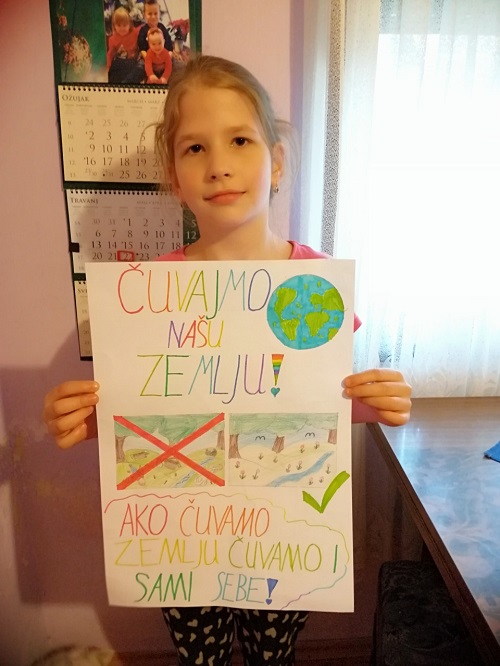 OŽUJAK
24 25
2 3 4
9 10 11
16 17 18
23 24 25
30 31
TRAVANJ
30 31 1 2 3 4 5
6 7 8 9 10
13 14 15 16 17
20 21 22 23
ČUVAJMO
NAŠU
ZEMLJU!
AKO ČUVAMO
ZEMLJU ČUVAMO I
SAMI SEBE!